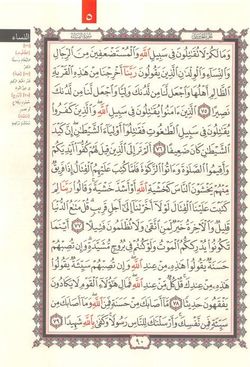 ٥
النساء
وَمَا لَكُمْ لَا تُقَٰتِلُونَ فِى سَبِيلِ ٱللَّهِ وَٱلْمُسْتَضْعَفِينَ مِنَ ٱلرِّجَالِ
وَٱلنِّسَآءِ وَٱلْوِلْدَٰنِ ٱلَّذِينَ يَقُولُونَ رَبَّنَآ أَخْرِجْنَا مِنْ هَٰذِهِ ٱلْقَرْيَةِ
ٱلظَّالِمِ أَهْلُهَا وَٱجْعَل لَّنَا مِن لَّدُنكَ وَلِيًّا وَٱجْعَل لَّنَا مِن لَّدُنكَ
نَصِيرًا ٧٥ ٱلَّذِينَ ءَامَنُوا۟ يُقَٰتِلُونَ فِى سَبِيلِ ٱللَّهِ وَٱلَّذِينَ كَفَرُوا۟
يُقَٰتِلُونَ فِى سَبِيلِ ٱلطَّٰغُوتِ فَقَٰتِلُوٓا۟ أَوْلِيَآءَ ٱلشَّيْطَٰنِ إِنَّ كَيْدَ
ٱلشَّيْطَٰنِ كَانَ ضَعِيفًا ٧٦ أَلَمْ تَرَ إِلَى ٱلَّذِينَ قِيلَ لَهُمْ كُفُّوٓا۟ أَيْدِيَكُمْ
وَأَقِيمُوا۟ ٱلصَّلَوٰةَ وَءَاتُوا۟ ٱلزَّكَوٰةَ فَلَمَّا كُتِبَ عَلَيْهِمُ ٱلْقِتَالُ إِذَا فَرِيقٌ
مِّنْهُمْ يَخْشَوْنَ ٱلنَّاسَ كَخَشْيَةِ ٱللَّهِ أَوْ أَشَدَّ خَشْيَةً وَقَالُوا۟ رَبَّنَا لِمَ
كَتَبْتَ عَلَيْنَا ٱلْقِتَالَ لَوْلَآ أَخَّرْتَنَآ إِلَىٰٓ أَجَلٍ قَرِيبٍ قُلْ مَتَٰعُ ٱلدُّنْيَا
قَلِيلٌ وَٱلْءَاخِرَةُ خَيْرٌ لِّمَنِ ٱتَّقَىٰ وَلَا تُظْلَمُونَ فَتِيلًا ٧٧ أَيْنَمَا
تَكُونُوا۟ يُدْرِككُّمُ ٱلْمَوْتُ وَلَوْ كُنتُمْ فِى بُرُوجٍ مُّشَيَّدَةٍ وَإِن تُصِبْهُمْ
حَسَنَةٌ يَقُولُوا۟ هَٰذِهِۦ مِنْ عِندِ ٱللَّهِ وَإِن تُصِبْهُمْ سَيِّئَةٌ يَقُولُوا۟
هَٰذِهِۦ مِنْ عِندِكَ قُلْ كُلٌّ مِّنْ عِندِ ٱللَّهِ فَمَالِ هَٰٓؤُلَآءِ ٱلْقَوْمِ لَا يَكَادُونَ
يَفْقَهُونَ حَدِيثًا ٧٨ مَّآ أَصَابَكَ مِنْ حَسَنَةٍ فَمِنَ ٱللَّهِ وَمَآ أَصَابَكَ مِن
سَيِّئَةٍ فَمِن نَّفْسِكَ وَأَرْسَلْنَٰكَ لِلنَّاسِ رَسُولًا وَكَفَىٰ بِٱللَّهِ شَهِيدًا ٧٩
٩٠